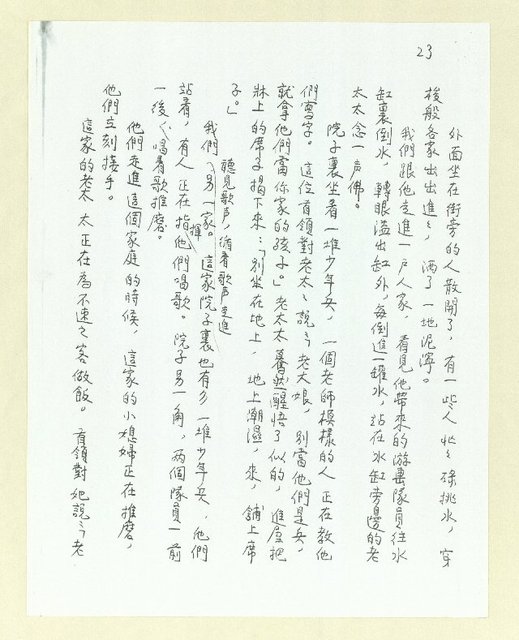 23
外面坐在街旁的人散開了，有一些人忙忙碌碌挑水，穿
梭般各家出出進進，洒了一地泥濘。
我們跟他走進一户人家，看見他帶來的游擊隊員往水
缸裏倒水，轉眼溢出缸外，每倒進一罐水，站在水缸旁邊的老
太太念一声佛。
院子裏坐着一堆少年兵，一個老師模樣的人正在教他
們寫字。這位首領對老太太說：老大娘，別當他們是兵，
就拿他們當你家的孩子。」老太太驀然醒悟了似的，進屋把
牀上的席子揭下來：「別坐在地上，地上潮濕，來，鋪上席
子。」
聽見歌声，循着歌声走進
我們另一家。這家院子裏也有一堆少年兵，他們
站着，有人正在指揮他們唱歌。院子另一角，两個隊員一前
一後，唱着歌推磨。
他們走進這個家庭的時候，這家的小媳婦正在推磨，
他們立刻接手。
這家的老太太正在為不速之客做飯。首領對她說：老